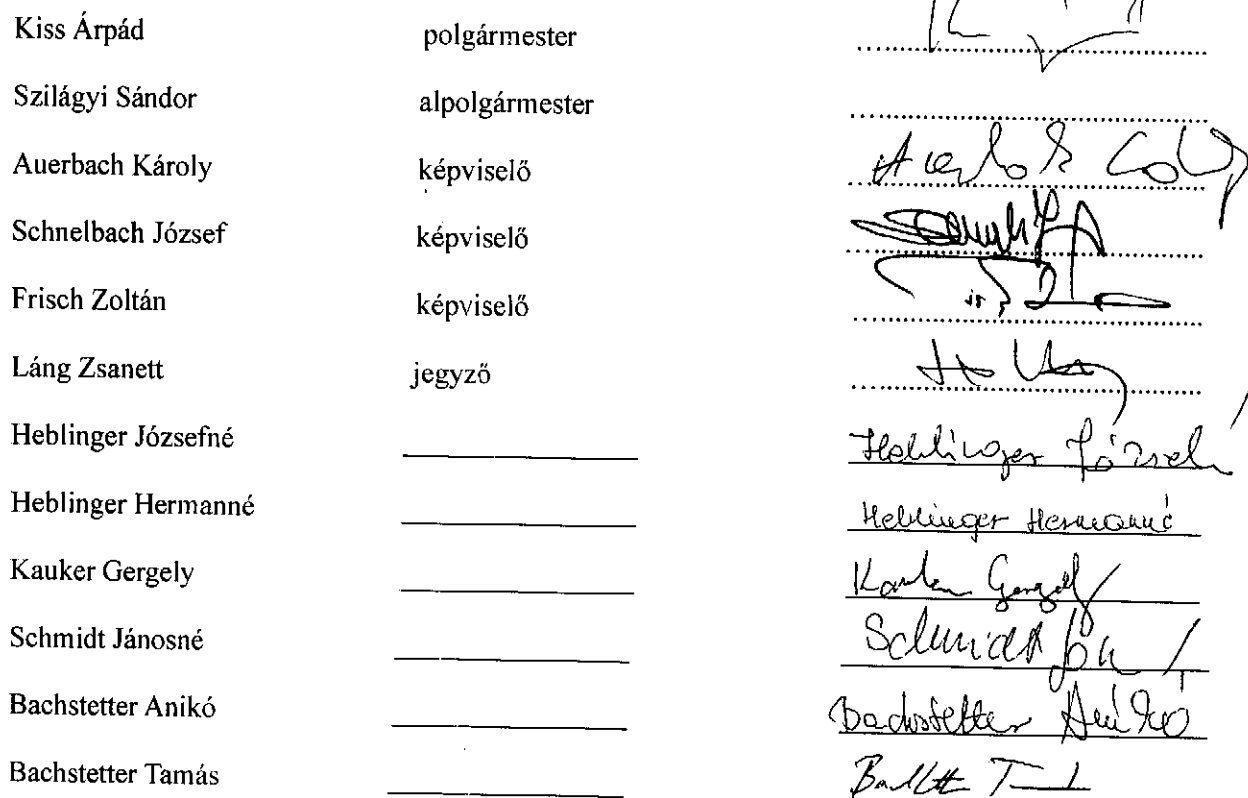 Kiss Árpád polgármester
Szilágyi Sándor alpolgármester
Auerbach Károly képviselő
Schnelbach József képviselő
Frisch Zoltán képviselő
Láng Zsanett jegyző
Heblinger Józsefné Heblinger
Heblinger Hermanné Heblinger Hermanné
Kauker Gergely Gergely
Schmidt Jánosné Schmidt
Bachstetter Anikó Bachstetter Anikó
Bachstetter Tamás